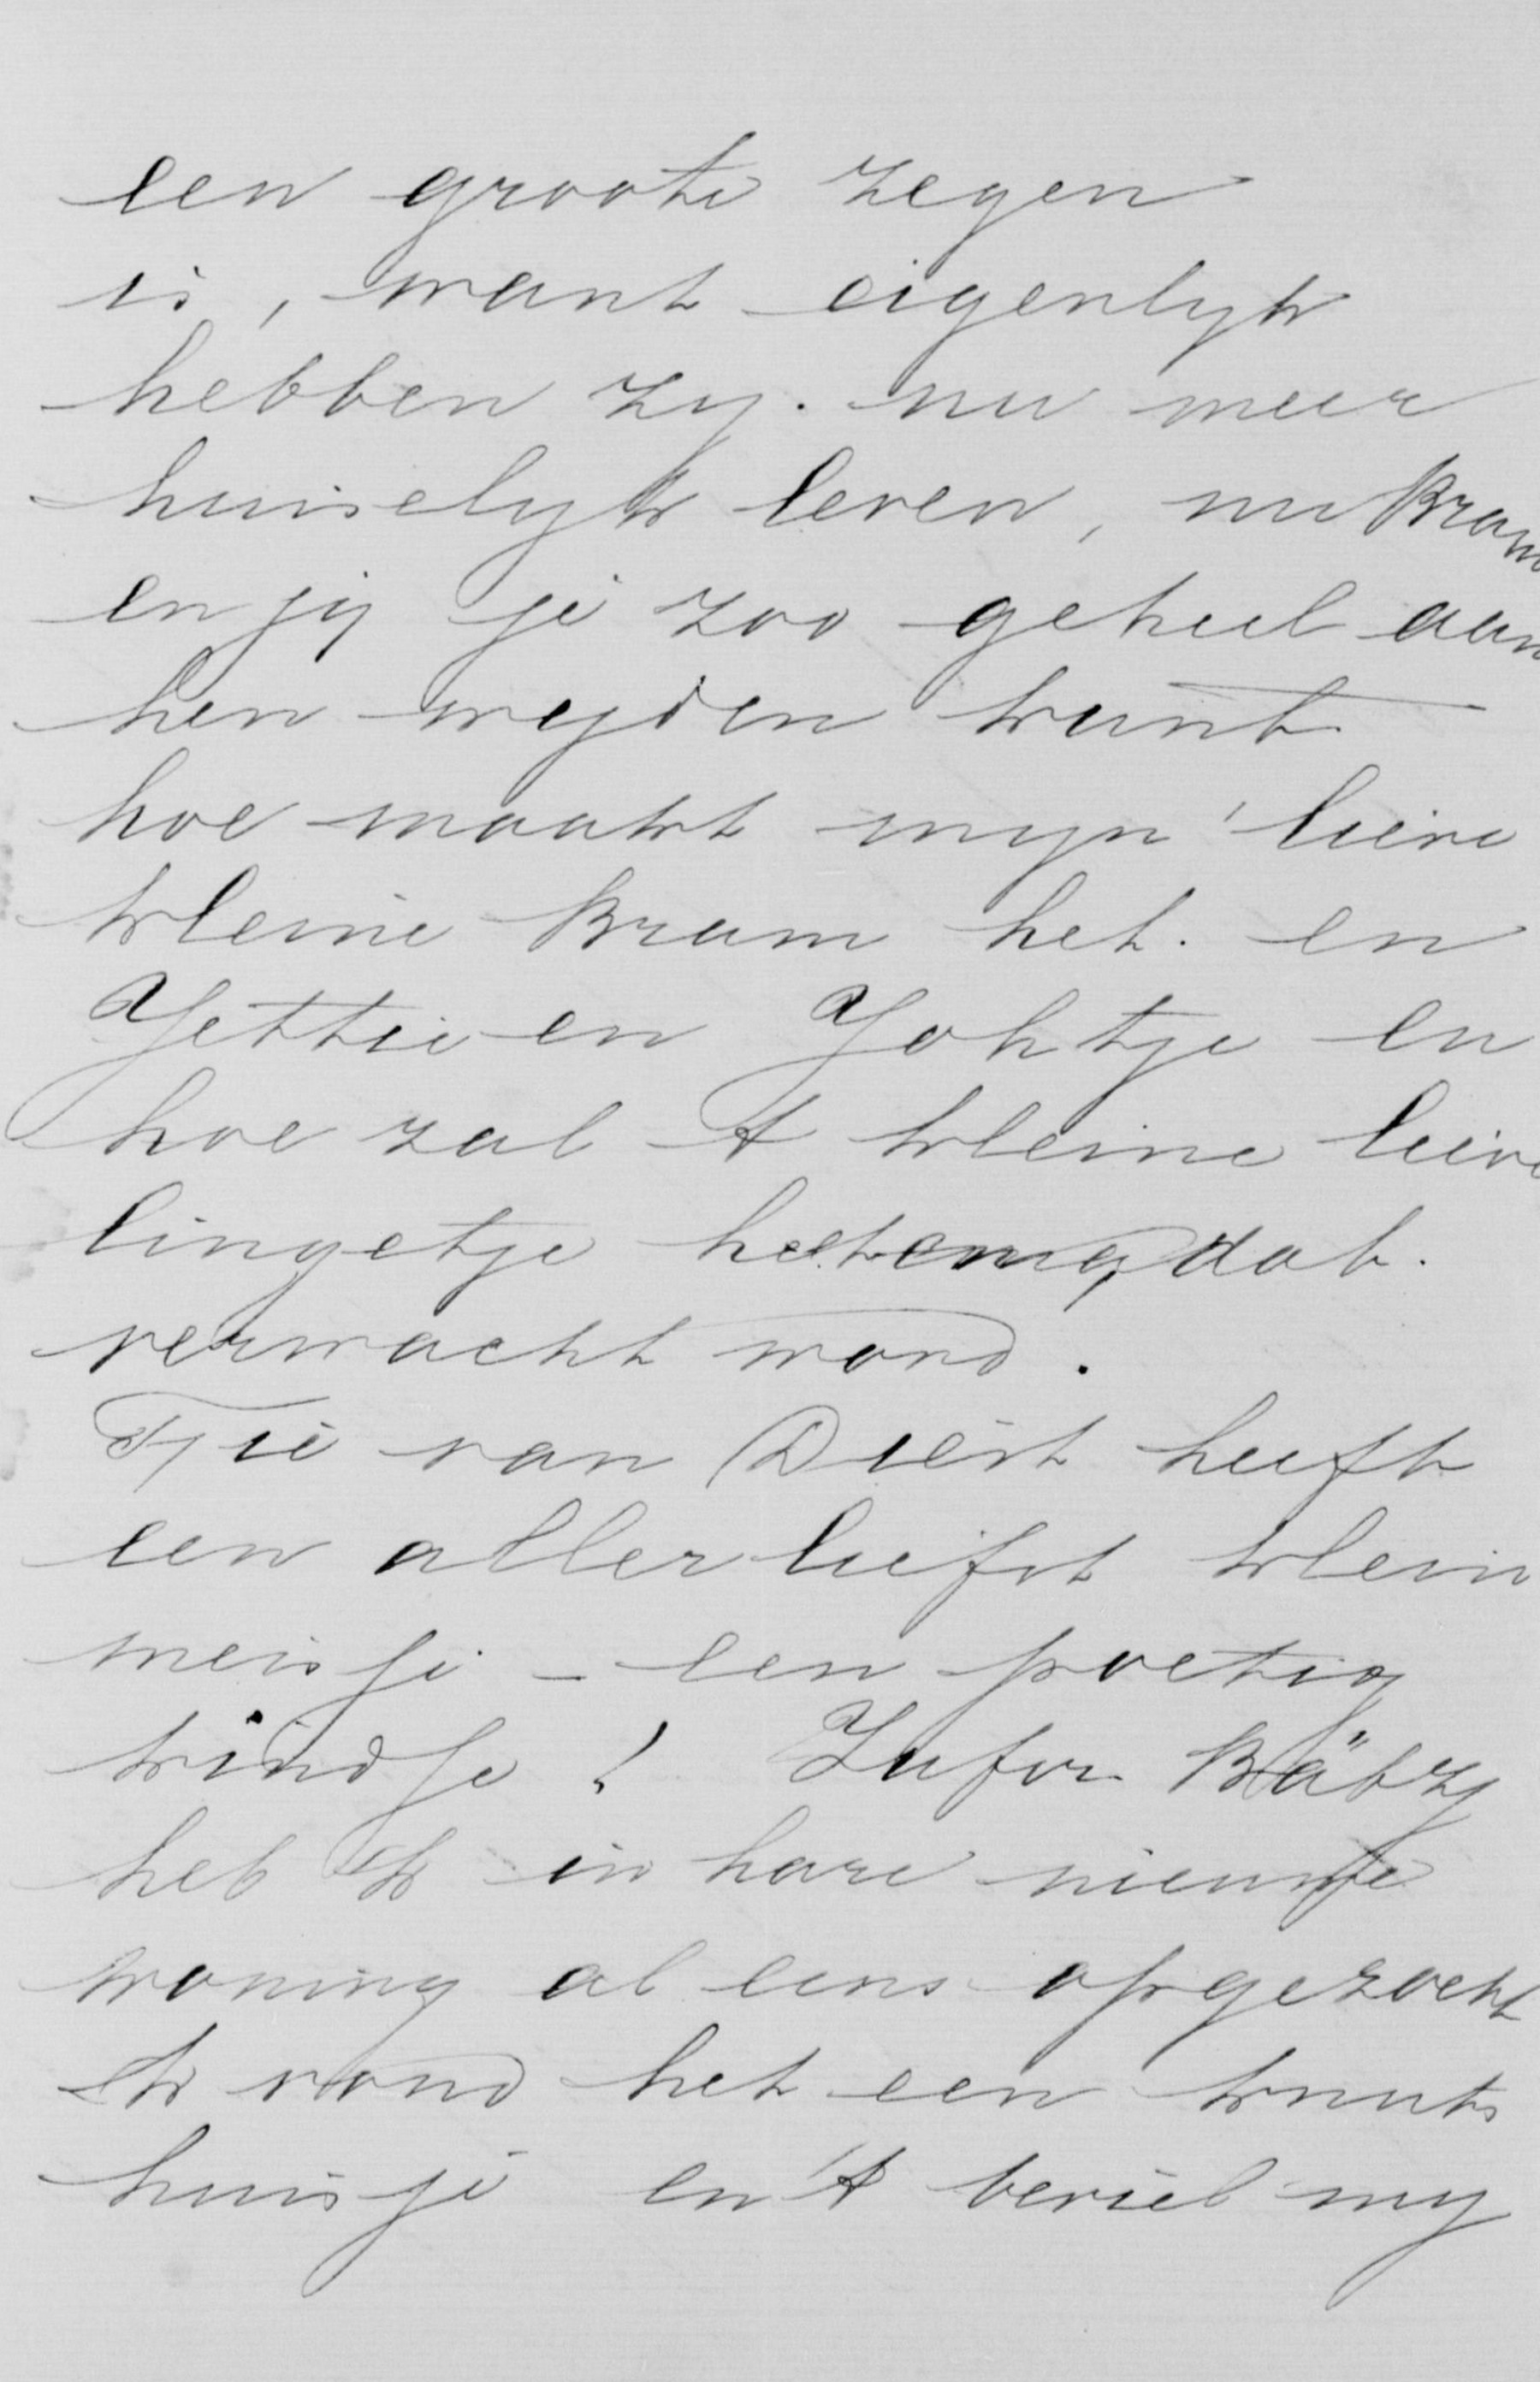 een groote zegen
is, want eigenlyk
hebben zy. nu meer
huiselyk leven, nu Bram
en jy je zoo geheel aan
hen wyden kunt
hoe maakt myn lieve
kleine Bram het. en
Jettie en Johtje en
hoe zal 't kleine lieve
lingetje het dat.
verwacht word.
Tie van Diest heeft
een allerliefst klein
meisje - een poetig
kindje! Jufvr. Bätz
heb ik in hare nieuwe
woning al eens opgezocht
Ik vond het een knuts
huisje en 't beviel my